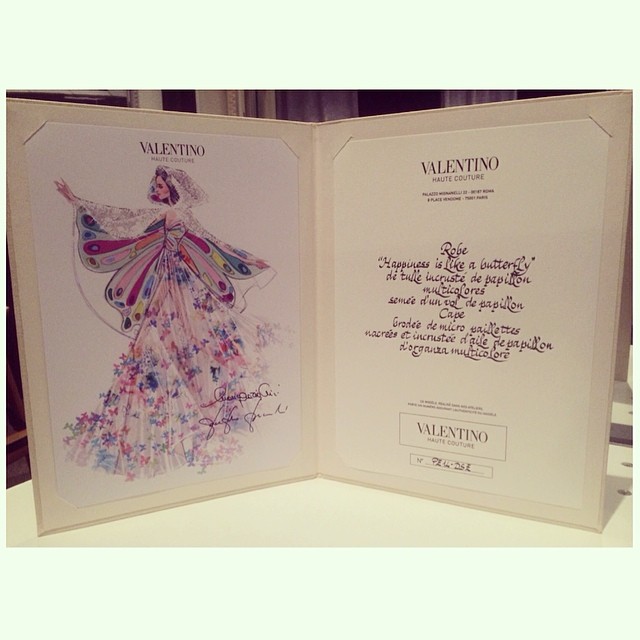 VALENTINO
HAUTE COUTURE
VALENTINO
HAUTE COUTURE
PALAZZO MIGNANELLI 22 - 00187 ROMA
8 PLACE VENDOME - 75001 PARIS
Robe
"Happiness is like a butterfly"
de tulle incrusté de papillon
multicolores
semée d'un vol de papillon
Cape
brodée de micro paillettes
nacrées et incrustée d'aile de papillon
d'organza multicolore
VALENTINO
HAUTE COUTURE
N°